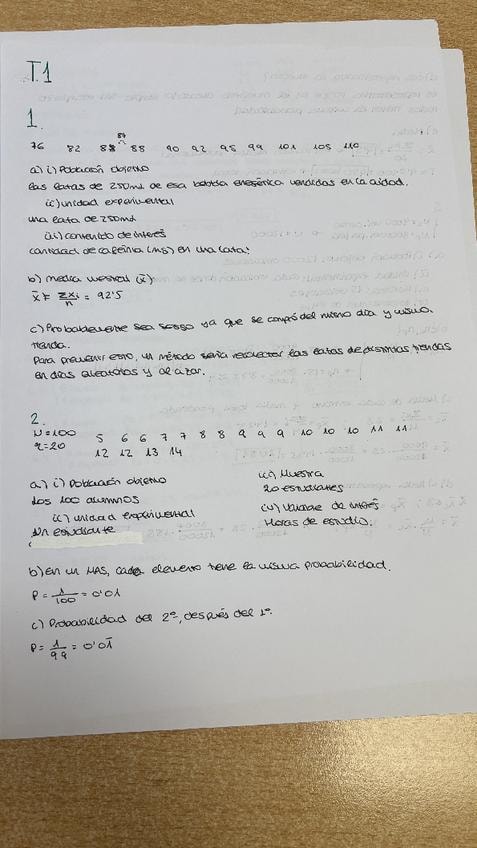 T.1
1.
87
76 82 88 88 90 92 95 99 101 105 110
a) i) Población objetivo
Las latas de 250ml de esa bebida energética vendidas en la ciudad.
ii) unidad experimental
una lata de 250ml
iii) contenido de interés
cantidad de cafeína (mg) en una lata.
b) media muestral (x̄)
x̄ = Σxi/n = 92'5
c) Probablemente sea sesgo ya que se compró del mismo día y misma
tienda.
Para prevenir esto, un método sería recolectar las latas de distintas tiendas
en días aleatorios y al azar.
2.
N=100
n=20
5 6 6 7 7 8 8 9 9 9 10 10 10 11 11
12 12 13 14
a) i) Población objetivo
Los 100 alumnos
ii) unidad experimental
un estudiante
iii) Muestra
20 estudiantes
iv) Variable de interés
Horas de estudio.
b) En un MAS, cada elemento tiene la misma probabilidad.
P = 1/100 = 0'01
c) Probabilidad del 2º, después del 1º.
P = 1/99 = 0'01̄